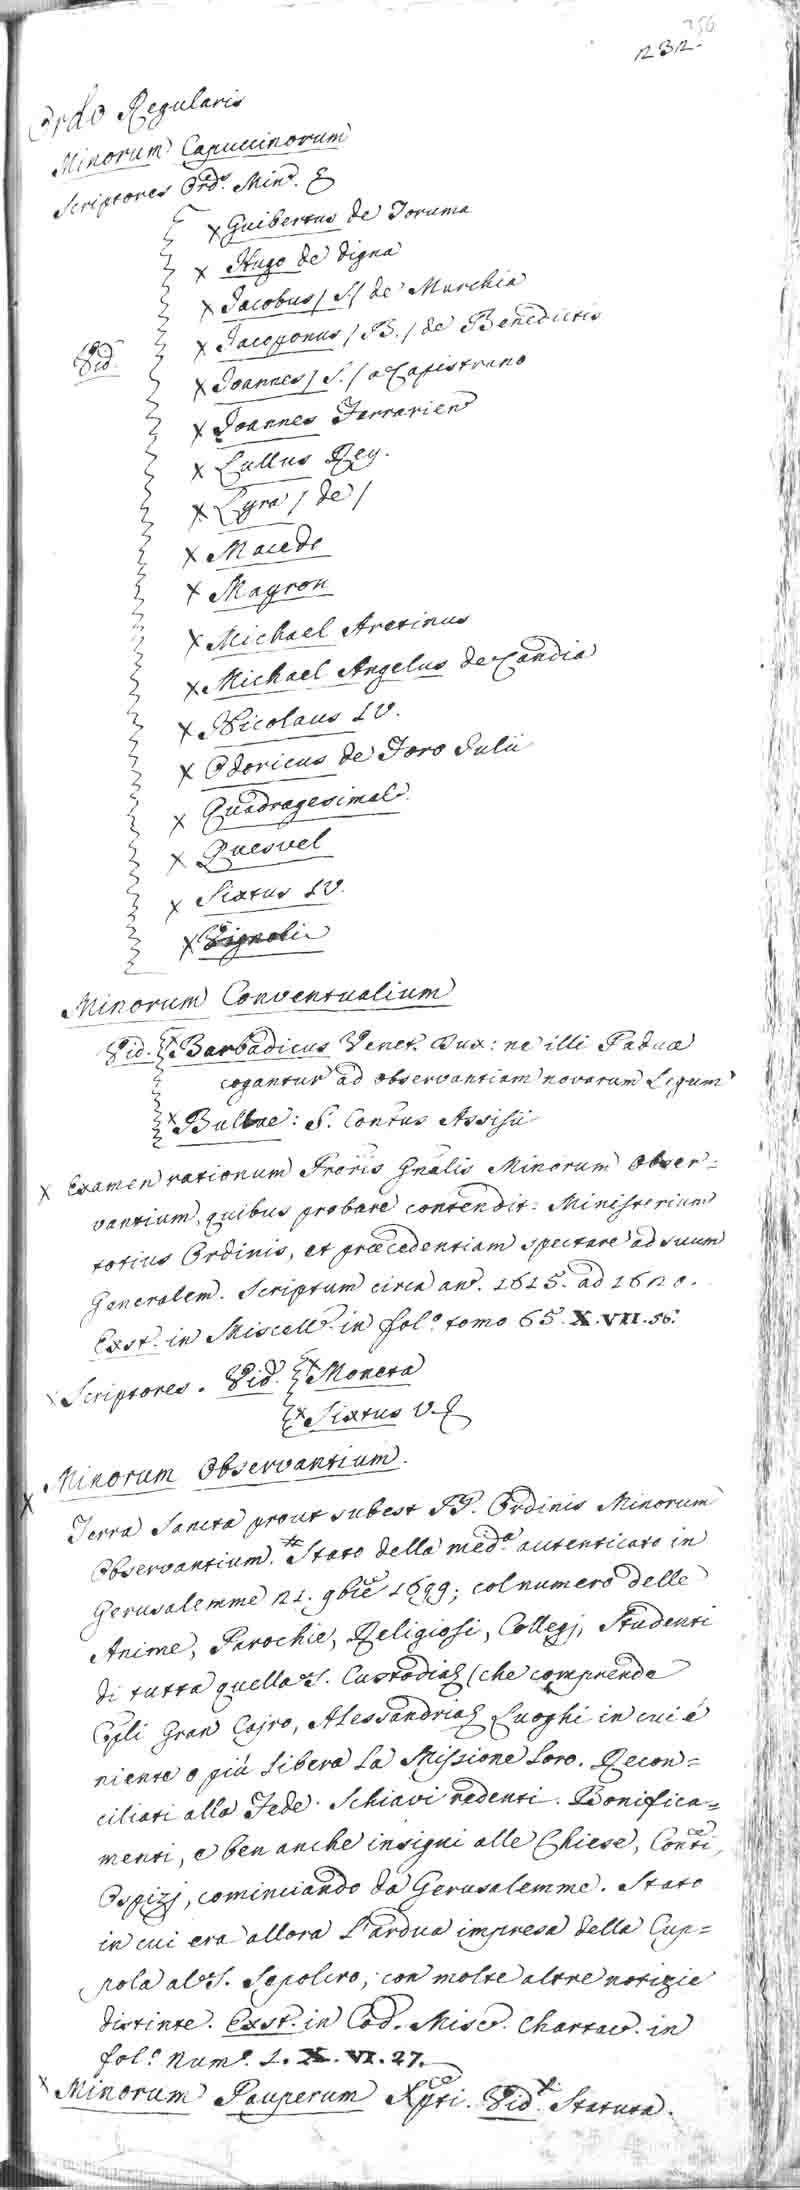 256
232.
Ordo Regularis
Minorum Capuccinorum
Scriptores Ord.s Min.
x Guibertus de Toruma
x Hugo de Digna
x Jacobus / S. / de Marchia
x Jacoponus / B. / de Benedictis
Vid.
x Joannes / S. / a Capistrano
x Joannes Ferrarien
x Lullus Ray.
x Lyra / de /
x Macedo
x Mayron
x Michael Aretinus
x Michael Angelus de Candia
x Nicolaus IV.
x Odoricus de Foro Julii
x Quadragesimale.
x Quesvel
x Sixtus IV.
x Vignoli
Minorum Conventualium
Vid. x Barbadicus Venet. Dux: ne illi Paduae
cogantur ad observantiam novarum Legum
x Bullae: S. Contus Assisii
x Examen rationum Proris Gnalis Minorum Obser=
vantium, quibus probare contendit: Ministerium
totius Ordinis, et praecedentiam spectare ad suum
Generalem. Scriptum circa an. 1615. ad 1620.
Exst. in Miscell. in fol.o tomo 65. X. VII. 56.
x Scriptores. Vid. x Moneta
x Sixtus V.
x Minorum Observantium.
Terra Sancta prout subest PP. Ordinis Minorum
Observantium. # Stato della med.a autenticato in
Gerusalemme 21. 9bre 1699; col numero delle
Anime, Parochie, Religiosi, Collegj, Studenti
di tutta quella S. Custodia, (che comprende
Cpli Gran Cajro, Alessandria, Luoghi in cui é
niente o piú libera la Missione loro. Recon=
ciliati alla Fede. Schiavi redenti. Bonifica=
menti, e ben anche insigni alle Chiese, Conti,
Ospizj, cominciando da Gerusalemme. Stato
in cui era allora l'ardua impresa della Cup=
pola al S. Sepolcro; con molte altre notizie
distinte. Exst. in Cod. Misc. Chartac. in
fol.o Num.o 1. X. VI. 27.
x Minorum Pauperum Xpti. Vid. x Statuta.